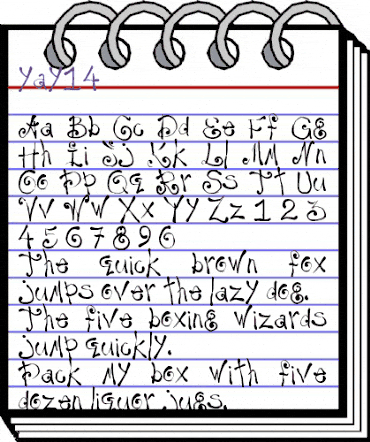 YaY14
Aa Bb Cc Dd Ee Ff Gg
Hh Ii Jj Kk Ll Mm Nn
Oo Pp Qq Rr Ss Tt Uu
Vv Ww Xx Yy Zz 1 2 3
4 5 6 7 8 9 6
The quick brown fox
jumps over the lazy dog.
The five boxing wizards
jump quickly.
Pack my box with five
dozen liquor jugs.